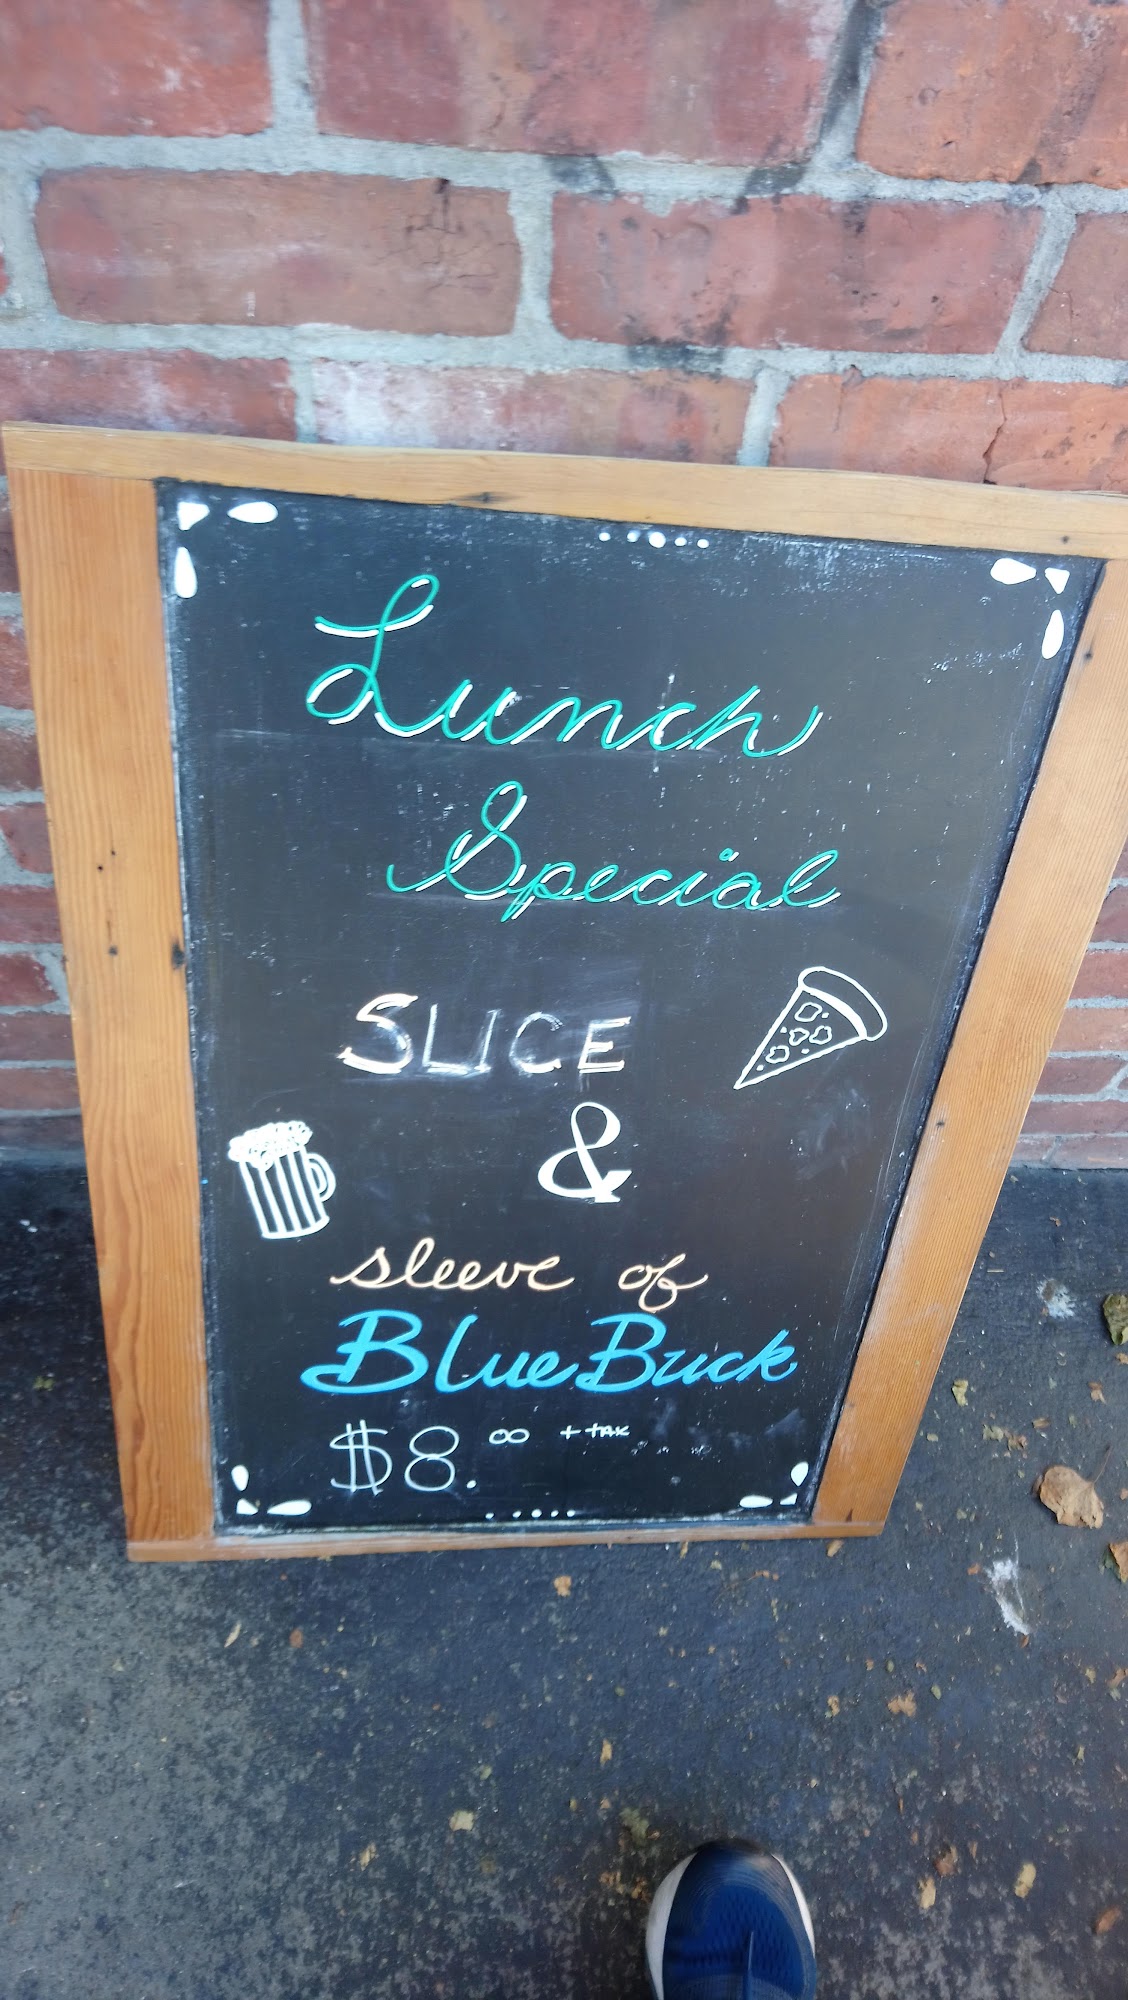 Lunch
Special
SLICE
&
sleeve of
Blue Buck
$8.00 + tax